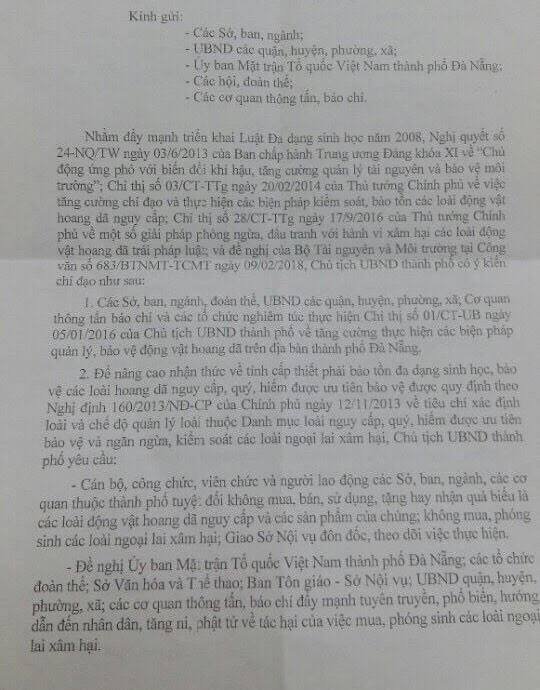 Kính gửi:
- Các Sở, ban, ngành;
- UBND các quận, huyện, phường, xã;
- Ủy ban Mặt trận Tổ quốc Việt Nam thành phố Đà Nẵng;
- Các hội, đoàn thể;
- Các cơ quan thông tấn, báo chí.
Nhằm đẩy mạnh triển khai Luật Đa dạng sinh học năm 2008, Nghị quyết số
24-NQ/TW ngày 03/6/2013 của Ban chấp hành Trung ương Đảng khóa XI về “Chủ
động ứng phó với biến đổi khí hậu, tăng cường quản lý tài nguyên và bảo vệ môi
trường”; Chỉ thị số 03/CT-TTg ngày 20/02/2014 của Thủ tướng Chính phủ về việc
tăng cường chỉ đạo và thực hiện các biện pháp kiểm soát, bảo tồn các loài động vật
hoang dã nguy cấp; Chỉ thị số 28/CT-TTg ngày 17/9/2016 của Thủ tướng Chính
phủ về một số giải pháp phòng ngừa, đấu tranh với hành vi xâm hại các loài động
vật hoang dã trái pháp luật; và đề nghị của Bộ Tài nguyên và Môi trường tại Công
văn số 683/BTNMT-TCMT ngày 09/02/2018, Chủ tịch UBND thành phố có ý kiến
chỉ đạo như sau:
1. Các Sở, ban, ngành, đoàn thể, UBND các quận, huyện, phường, xã; Cơ quan
thông tấn báo chí và các tổ chức nghiêm túc thực hiện Chỉ thị số 01/CT-UB ngày
05/01/2016 của Chủ tịch UBND thành phố về tăng cường thực hiện các biện pháp
quản lý, bảo vệ động vật hoang dã trên địa bàn thành phố Đà Nẵng.
2. Để nâng cao nhận thức về tính cấp thiết phải bảo tồn đa dạng sinh học, bảo
vệ các loài hoang dã nguy cấp, quý, hiếm được ưu tiên bảo vệ được quy định theo
Nghị định 160/2013/NĐ-CP của Chính phủ ngày 12/11/2013 về tiêu chí xác định
loài và chế độ quản lý loài thuộc Danh mục loài nguy cấp, quý, hiếm được ưu tiên
bảo vệ và ngăn ngừa, kiểm soát các loài ngoại lai xâm hại, Chủ tịch UBND thành
phố yêu cầu:
- Cán bộ, công chức, viên chức và người lao động các Sở, ban, ngành, các cơ
quan thuộc thành phố tuyệt đối không mua, bán, sử dụng, tặng hay nhận quà biếu là
các loài động vật hoang dã nguy cấp và các sản phẩm của chúng; không mua, phóng
sinh các loài ngoại lai xâm hại; Giao Sở Nội vụ đôn đốc, theo dõi việc thực hiện.
- Đề nghị Ủy ban Mặt trận Tổ quốc Việt Nam thành phố Đà Nẵng; các tổ chức
đoàn thể; Sở Văn hóa và Thể thao; Ban Tôn giáo - Sở Nội vụ; UBND quận, huyện,
phường, xã; các cơ quan thông tấn, báo chí đẩy mạnh tuyên truyền, phổ biến, hướng
dẫn đến nhân dân, tăng ni, phật tử về tác hại của việc mua, phóng sinh các loài ngoại
lai xâm hại.